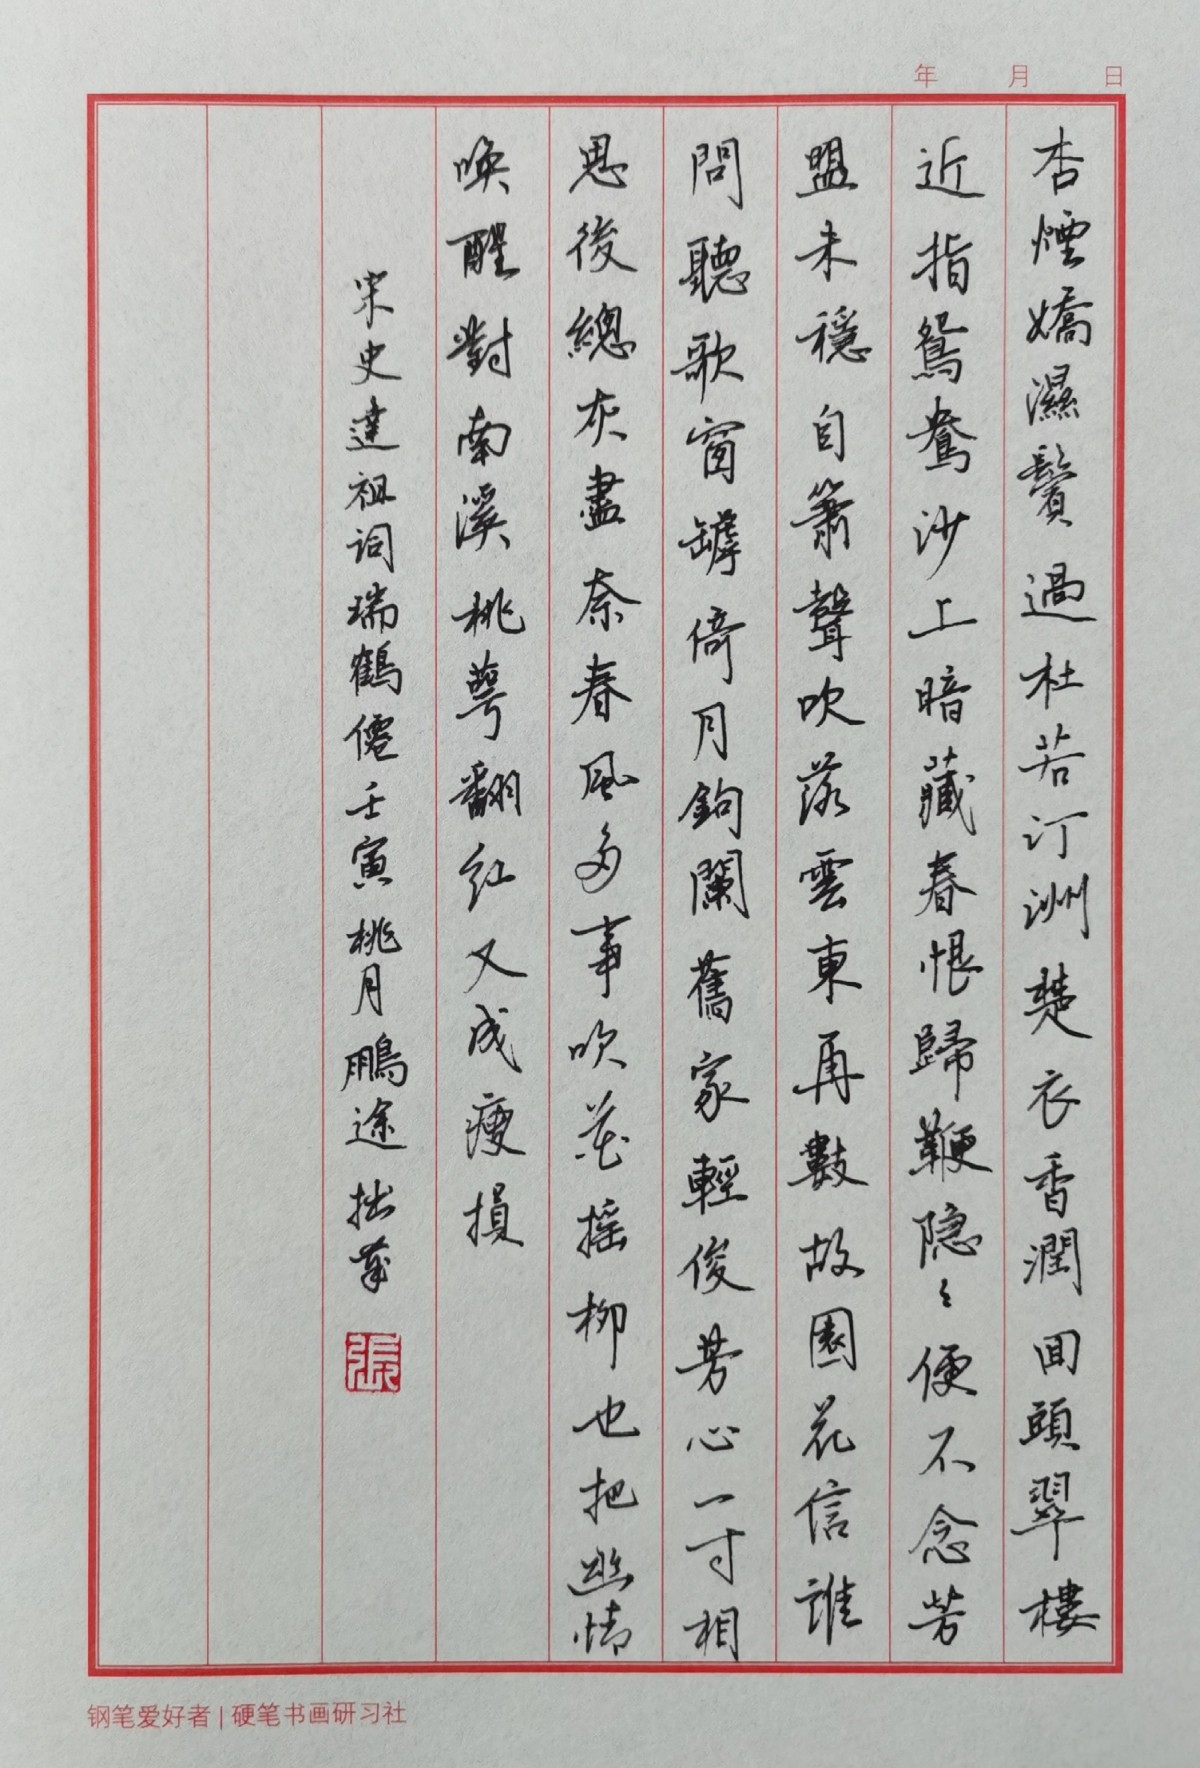 年 月 日
杏煙嬌濕鬢過杜若汀洲楚衣香潤回頭翠樓
近指鴛鴦沙上暗藏春恨歸鞭隐〻便不念芳
盟未穩自簫聲吹落雲東再數故園花信誰
問聽歌窗罅倚月鉤闌舊家輕俊芳心一寸相
思後總灰盡奈春風多事吹花搖柳也把幽情
喚醒對南溪桃萼翻紅又成瘦損
宋史達祖詞瑞鶴僊壬寅桃月鵬途拙筆
張
钢笔爱好者 | 硬笔书画研习社